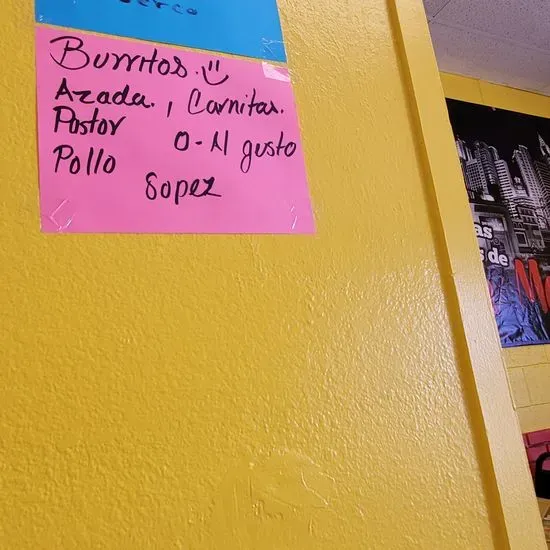 Burritos. :)
Azada. , Carnitas.
Pastor
O-Al gusto
Pollo
Sopez
as
s de